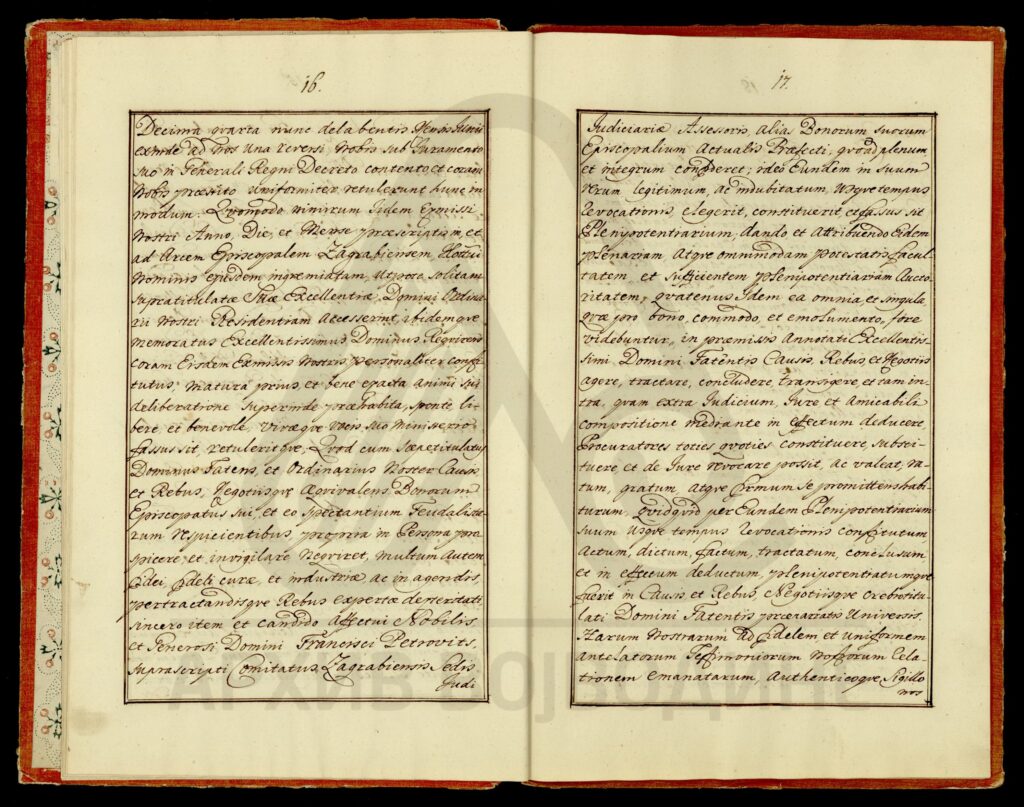 16.
Decima quarta nunc delabentis Mensis Junii
exinde ad Nos una reversi Nobis sub Juramento
suo in Generali Regni Decreto contento, et coram
Nobis præstito Uniformiter retulerunt hunc in
modum. Quomodo nimirum Iidem Exmissi
Nostri Anno, Die, et Mense præscriptis in, et
ad Arcem Episcopalem Zagrabiensem,
Nominis ejusdem ingrediatam, Utpote Solitam
Supratitulatæ Suæ Excellentiæ, Domini Ordina
rii Nostri Residentiam Accesserint, ibidemque
memoratus Excellentissimus Dominus Requirens
coram Eisdem Exmissis Nostris personaliter consti
tutus; matura prius, et bene exacta Animi sui
deliberatione superinde præhabita, sponte li-
bere et benevole, vivæque vocis suo Ministerio
fassus sit, retuleritque, Quod cum Sæpetitulatus
Dominus Fatens, et Ordinarius Noster Causis
et Rebus, Negotiisque Æquivalens Bonorum
Episcopatus sui, et eo spectantium Feudalista
rum respicientibus, propria in Persona pro
spicere, et invigilare Nequiret, multum Autem
Fidei, fideli curæ, et industriæ ac in agendis,
pertractandisque Rebus expertæ dexteritati,
sincero item et candido Affectui Nobilis
et Generosi Domini Francisci Petrovits,
suprascripti Comitatus Zagrabiensis Sedis
Judi
17.
Judiciariæ Assessoris, alias Bonorum suorum
Episcopalium Actualis Præfecti, quoad plenum
et integrum confideret; ideo Eundem in suum
verum legitimum, ac indubitatum, Usque tempus
revocationis, elegerit, constituerit, et fassus sit
Plenipotentiarium, dando et Attribuendo Eidem
plenariam Atque omnimodam potestatis facul
tatem et sufficientem plenipotentiariam Aucto
ritatem, quatenus Idem ea omnia, et singula
quæ pro bono, commodo, et emolumento, fore
videbuntur, in præmissis Annotati Excellentis-
simi Domini Fatentis Causis, Rebus, et Negotiis
agere, tractare, concludere, transigere et tam in-
tra, quam extra Judicium, Jure et Amicabili
compositione mediante in effectum deducere,
Procuratores toties quoties constituere, substi-
tuere, et de Jure revocare possit, ac valeat, ra-
tum, gratum, Atque firmum se promittens habi
turum, quidquid per Eundem Plenipotentiarium
suum Usque tempus revocationis constitutum
Actum, dictum, factum, tractatum, conclusum
et in effectum deductum, plenipotentiatumque
fuerit in Causis et Rebus Negotiisque crebrotitu-
lati Domini Fatentis prænarratis Universis.
Harum Nostrarum ad fidelem, et uniformem
antelatorum Testimoniorum Nostrorum Rela-
tionem emanatarum, Authenticoque Sigillo
nos